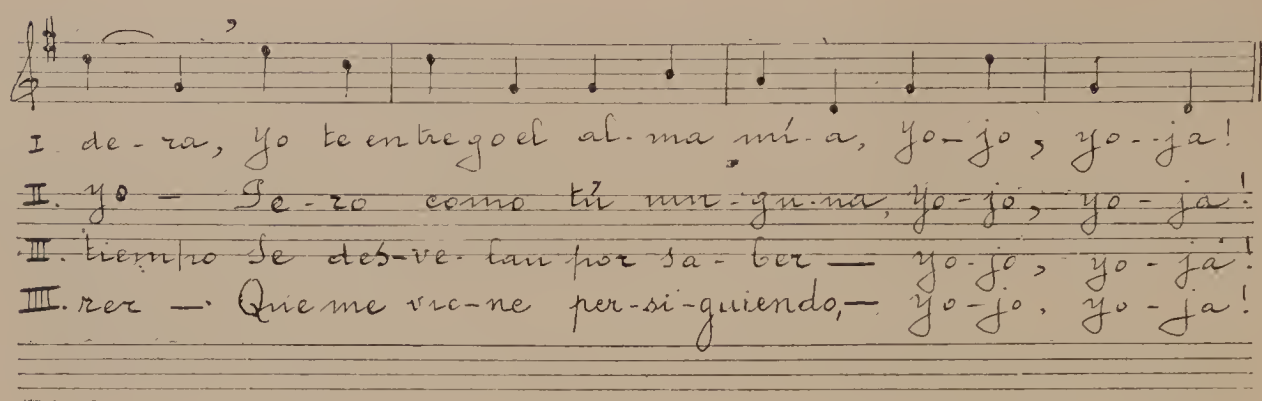 I. de-ra, Yo te entrego el al-ma mí-a, Yo-jo, yo-ja!
II. yo — Pe-ro como tú nin-gu-na, Yo-jo, yo-ja!
III. tiempo Se des-ve-lan por sa-ber — yo-jo, yo-ja!
IIII. rer — Que me vie-ne per-si-guiendo, — yo-jo, yo-ja!